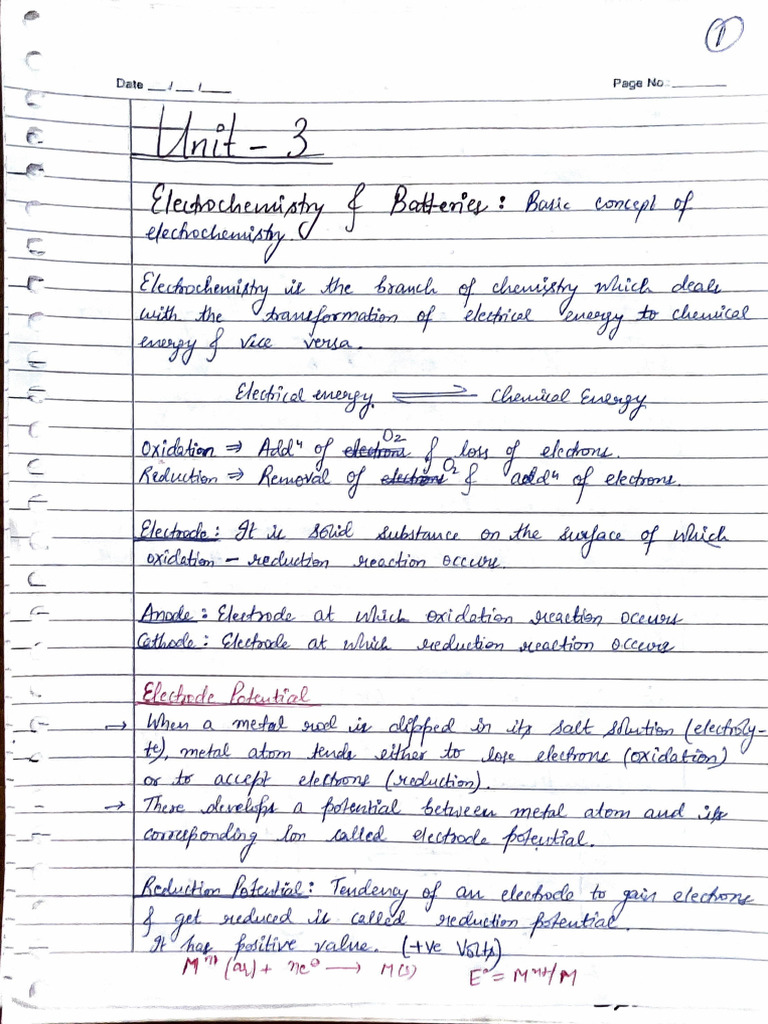 1
Date __/__/__ Page No.:________
Unit - 3
Electrochemistry & Batteries : Basic concept of
electrochemistry.
Electrochemistry is the branch of chemistry which deals
with the transformation of electrical energy to chemical
energy & vice versa.
Electrical energy ⇌ Chemical Energy
Oxidation ⇒ Addⁿ of ~~electrons~~ O2 & loss of electrons.
Reduction ⇒ Removal of ~~electrons~~ O2 & addⁿ of electrons.
Electrode : It is solid substance on the surface of which
oxidation - reduction reaction occurs.
Anode : Electrode at which oxidation reaction occurs
Cathode : Electrode at which reduction reaction occurs
Electrode Potential
→ When a metal rod is dipped in its salt solution (electroly-
te), metal atom tends either to lose electrons (oxidation)
or to accept electrons (reduction).
→ There develops a potential between metal atom and its
corresponding ion called electrode potential.
Reduction Potential : Tendency of an electrode to gain electrons
& get reduced is called reduction potential.
It has positive value. (+ve Volts)
Mⁿ⁺ (aq) + ne⁻ → M(s) E° = Mⁿ⁺/M